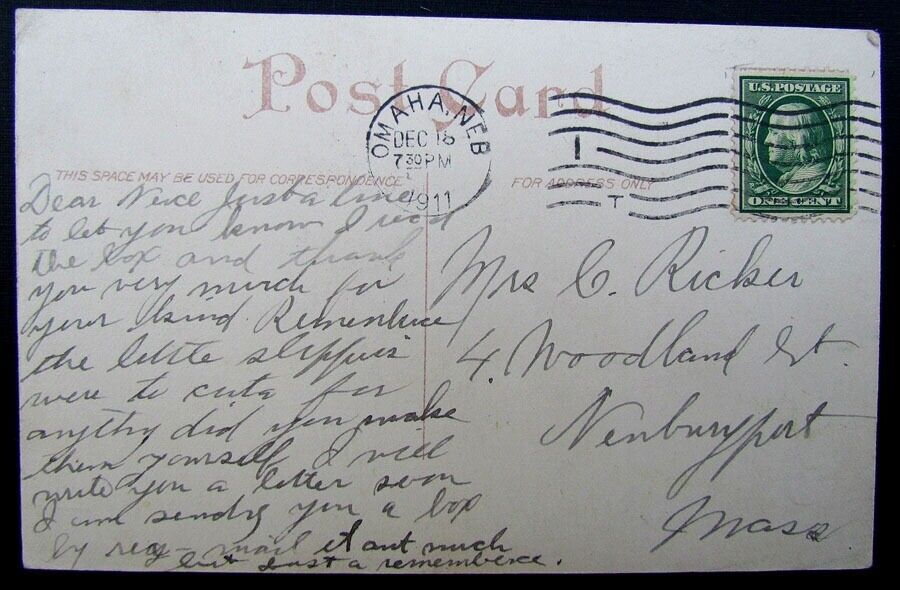 Post Card
OMAHA, NEB
DEC 18
7 30 PM
1911
1
T
U.S. POSTAGE
ONE CENT
THIS SPACE MAY BE USED FOR CORRESPONDENCE
FOR ADDRESS ONLY
Dear Neice Just a line
to let you know I rec'd
the box and thank
you very much for
your kind Rememberce
the little slippers
were to cute for
anything did you make
them yourself I will
write you a letter soon
I am sending you a box
by reg - mail it ant much
but Just a rememberce.
Mrs C. Ricker
4. Woodland St
Newburyport
Mass